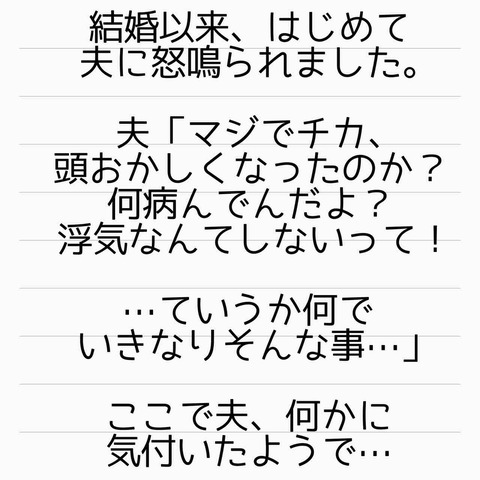 結婚以来、はじめて
夫に怒鳴られました。
夫「マジでチカ、
頭おかしくなったのか？
何病んでんだよ？
浮気なんてしないって！
…ていうか何で
いきなりそんな事…」
ここで夫、何かに
気付いたようで…